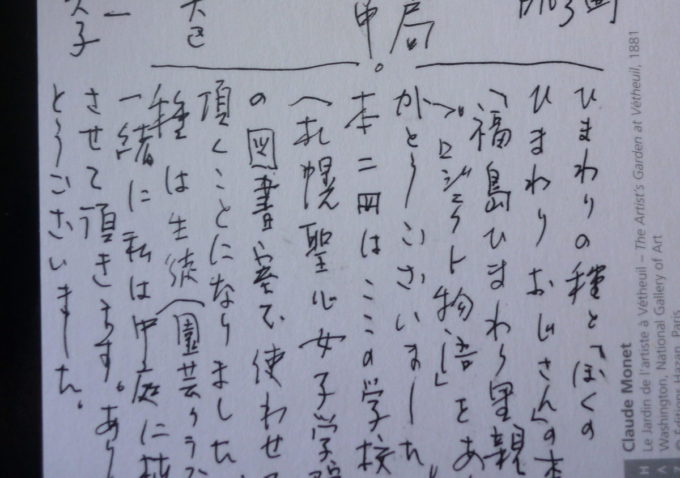 ひまわりの種と「ぼくの
ひまわりおじさん」の本
「福島ひまわり里親
プロジェクト物語」をあ
がとうございました。
本二冊はここの学校
(札幌聖心女子学院
の図書室で使わせて
頂くことになりました
種は生徒(園芸クラブ
一緒に私は中庭に植
させて頂きます。あり
とうございました。
Claude Monet
Le Jardin de l'artiste à Vétheuil – The Artist's Garden at Vétheuil, 1881
Washington, National Gallery of Art
© Éditions Hazan, Paris